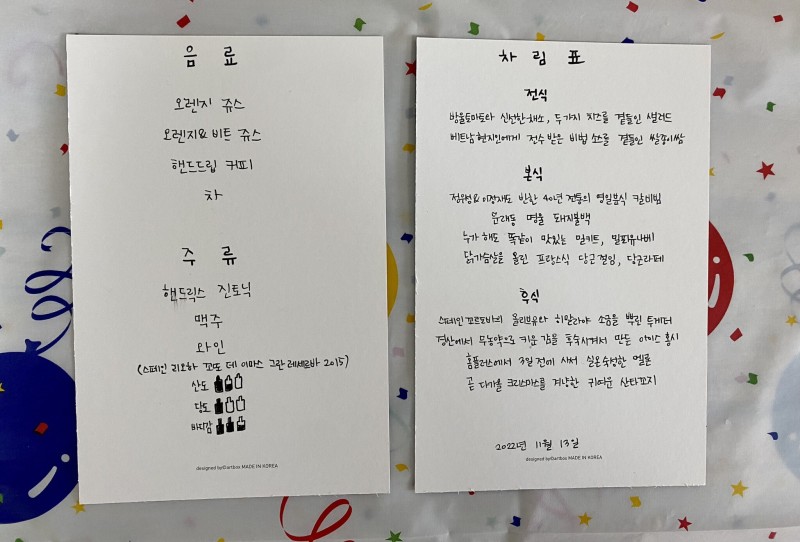 음료
오렌지 쥬스
오렌지&비튼 쥬스
핸드드립 커피
차
주류
핸드릭스 진토닉
맥주
와인
(스페인 리오하 꼬또 데 이마스 그란 레세르바 2015)
산도
당도
바디감
designed by©artbox MADE IN KOREA
차림표
전식
방울토마토와 신선한 채소, 두가지 치즈를 곁들인 샐러드
베트남 현지인에게 전수받은 비법 소스를 곁들인 쌀종이쌈
본식
정우성&이정재도 반한 40년 전통의 영일분식 칼비빔
문래동 명물 돼지불백
누가 해도 똑같이 맛있는 밀키트, 밀푀유나베
닭가슴살을 올린 프랑스식 당근절임, 당근라페
후식
스페인 꼬르도바의 올리브유와 히말라야 소금을 뿌린 투게더
경산에서 무농약으로 키운 감을 후숙시켜서 만든 아이스 홍시
홈플러스에서 3일 전에 사서 실온숙성한 멜론
곧 다가올 크리스마스를 겨냥한 귀여운 산타꼬지
2022년 11월 13일
designed by©artbox MADE IN KOREA